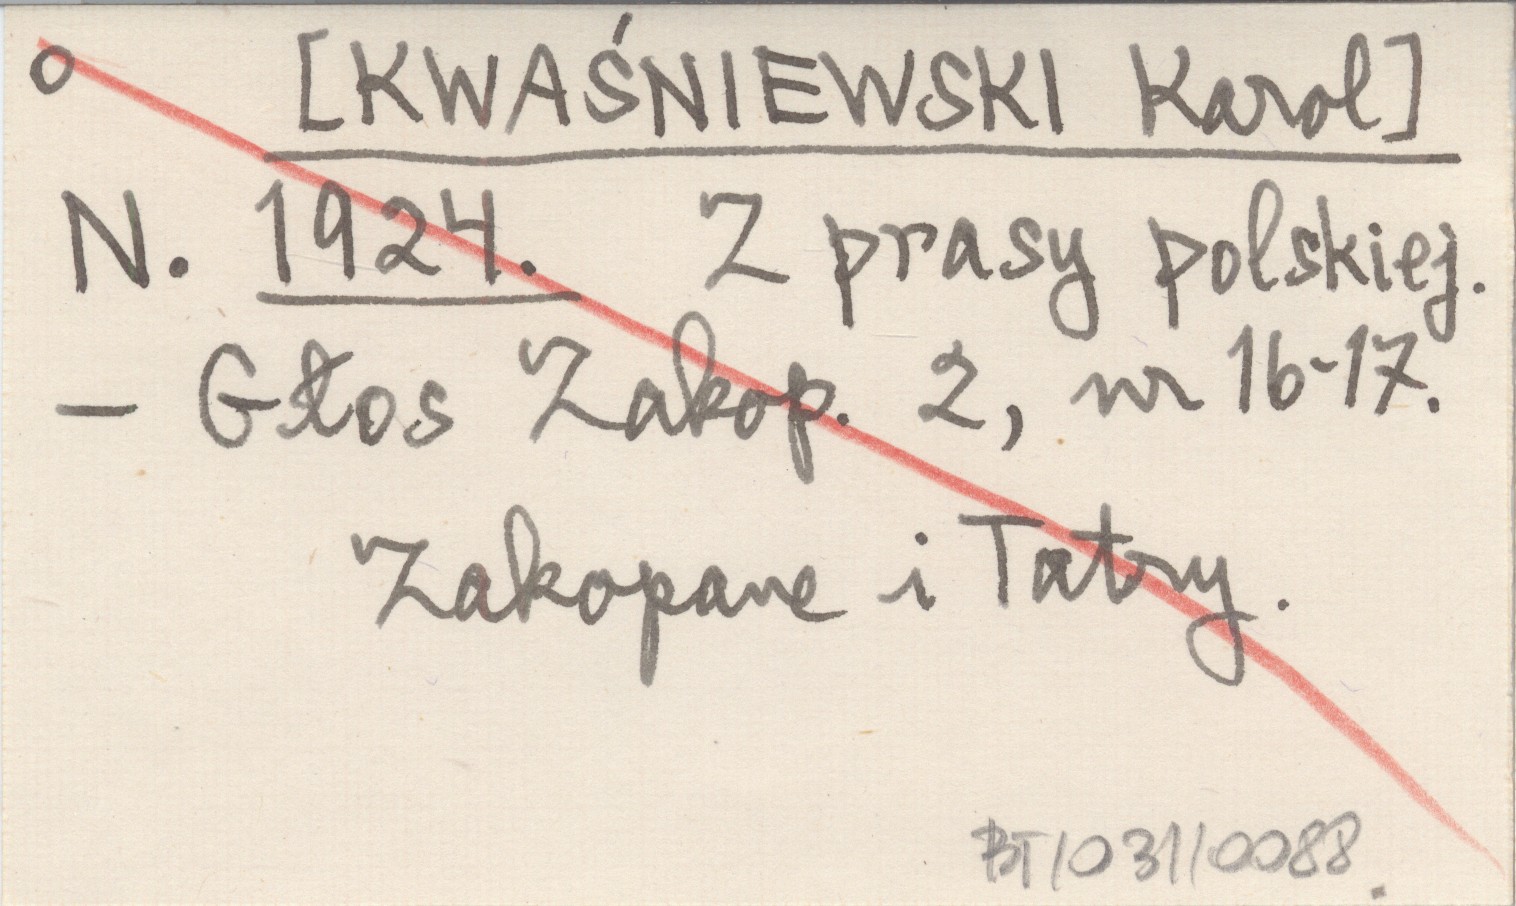 o [KWAŚNIEWSKI Karol]
N. 1924. Z prasy polskiej.
– Głos Zakop. 2, nr 16-17.
Zakopane i Tatry.
BT/031/0088.